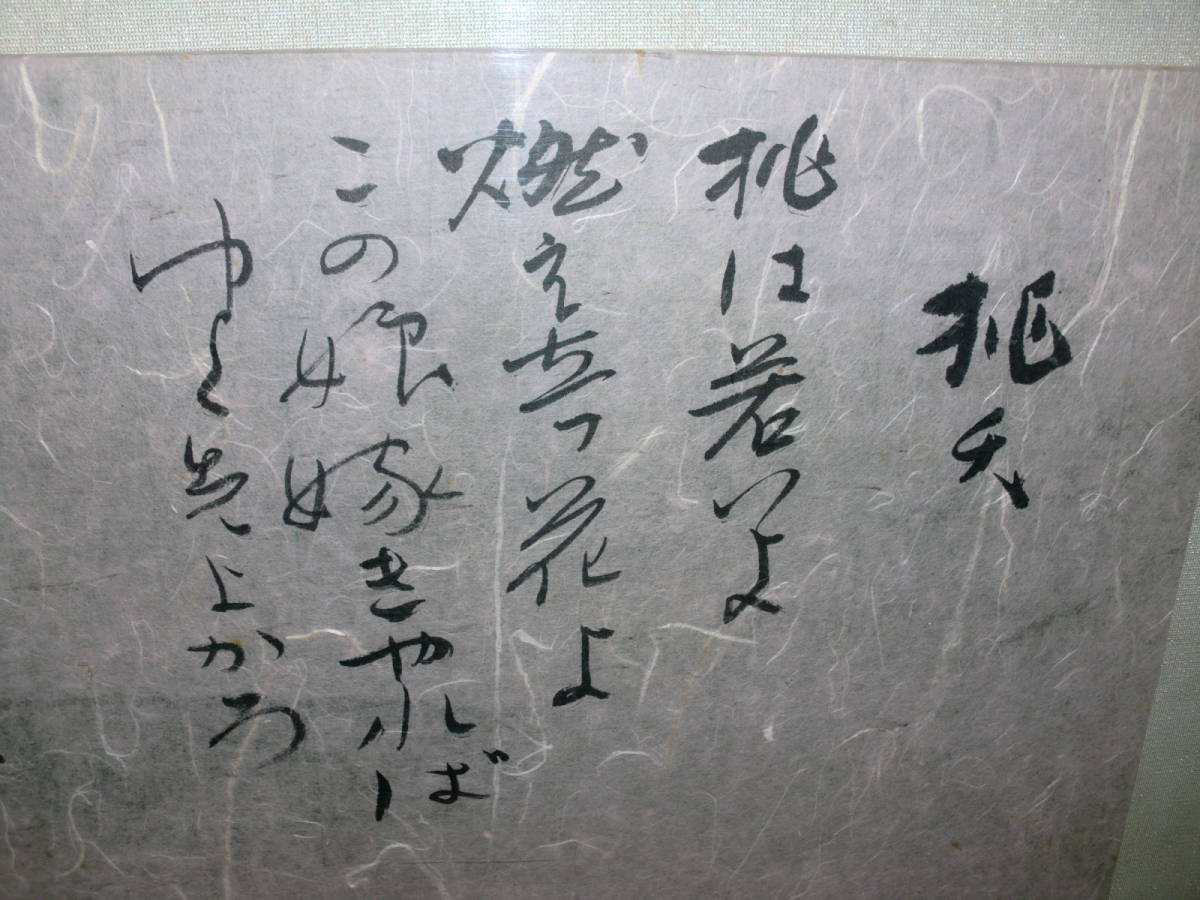 桃夭
桃は若いよ
燃え立つ花よ
この娘嫁きやれば
ゆく先よかろ